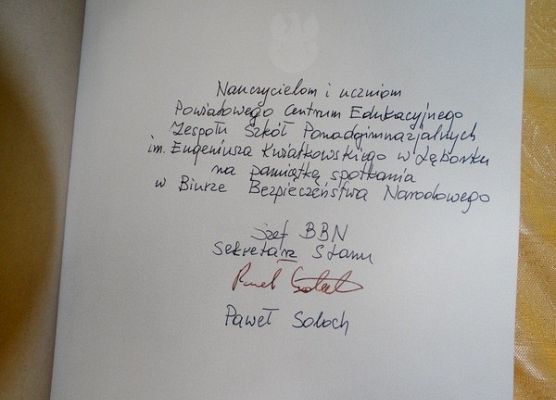 Nauczycielom i uczniom
Powiatowego Centrum Edukacyjnego
Zespołu Szkół Ponadgimnazjalnych
im. Eugeniusza Kwiatkowskiego w Lęborku
na pamiątkę spotkania
w Biurze Bezpieczeństwa Narodowego
szef BBN
Sekretarz Stanu
Paweł Soloch
Paweł Soloch